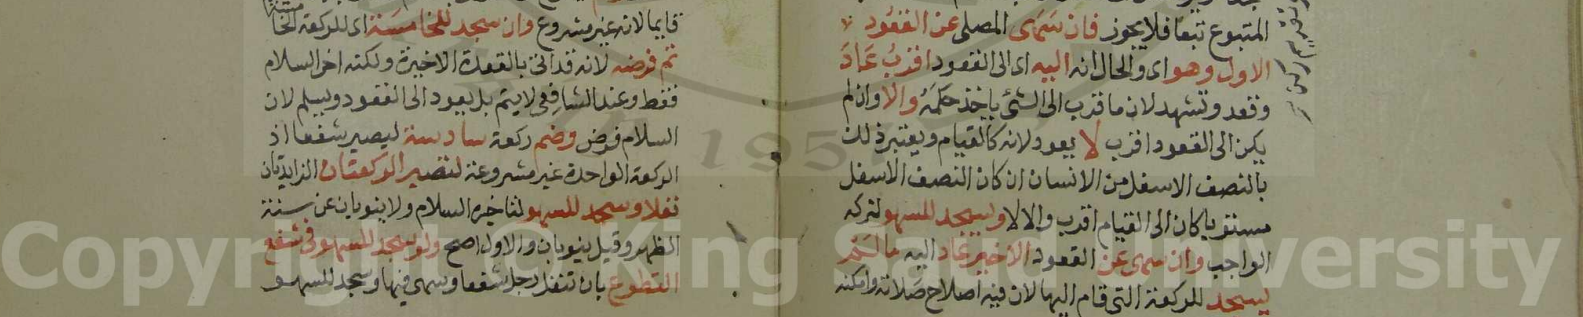 المتبوع تبعا فلا يجوز فان سهى المصلى عن القعود
الاول وهو اى والحال انه اليه اى الى القعود اقرب عاد
وقعد وتشهد لان ما قرب الى الشئ ياخذ حكمه والا وان لم
يكن الى القعود اقرب لا يعود لانه كالقيام ويعتبر ذلك
بالنصف الاسفل من الانسان ان كان النصف الاسفل
مستويا كان الى القيام اقرب والا لا ويسجد للسهو لتركه
الواجب وان سهى عن القعود الاخير عاد اليه ما لم
يسجد للركعة التى قام اليها لان فيه اصلاح صلاته وامكنه
قايما لانه غير مشروع وان سجد للخامسة اى للركعة
تم فرضه لانه قد اتى بالقعدة الاخيرة ولكنه اخر السلام
فقط وعند الشافعى لا يتم بل يعود الى القعود ويسلم لان
السلام فرض وضم ركعة سادسة ليصير شفعا اذ
الركعة الواحدة غير مشروعة لتصير الركعتان الزايدتان
نفلا وسجد للسهو لتاخيره السلام ولا ينوبان عن سنة
الظهر وقيل ينوبان والاول اصح ولو سجد للسهو فى شفع
التطوع بان تنفل رجل شفعا وسهى فيها وسجد للسهو
1957
Copyright © King Saud University